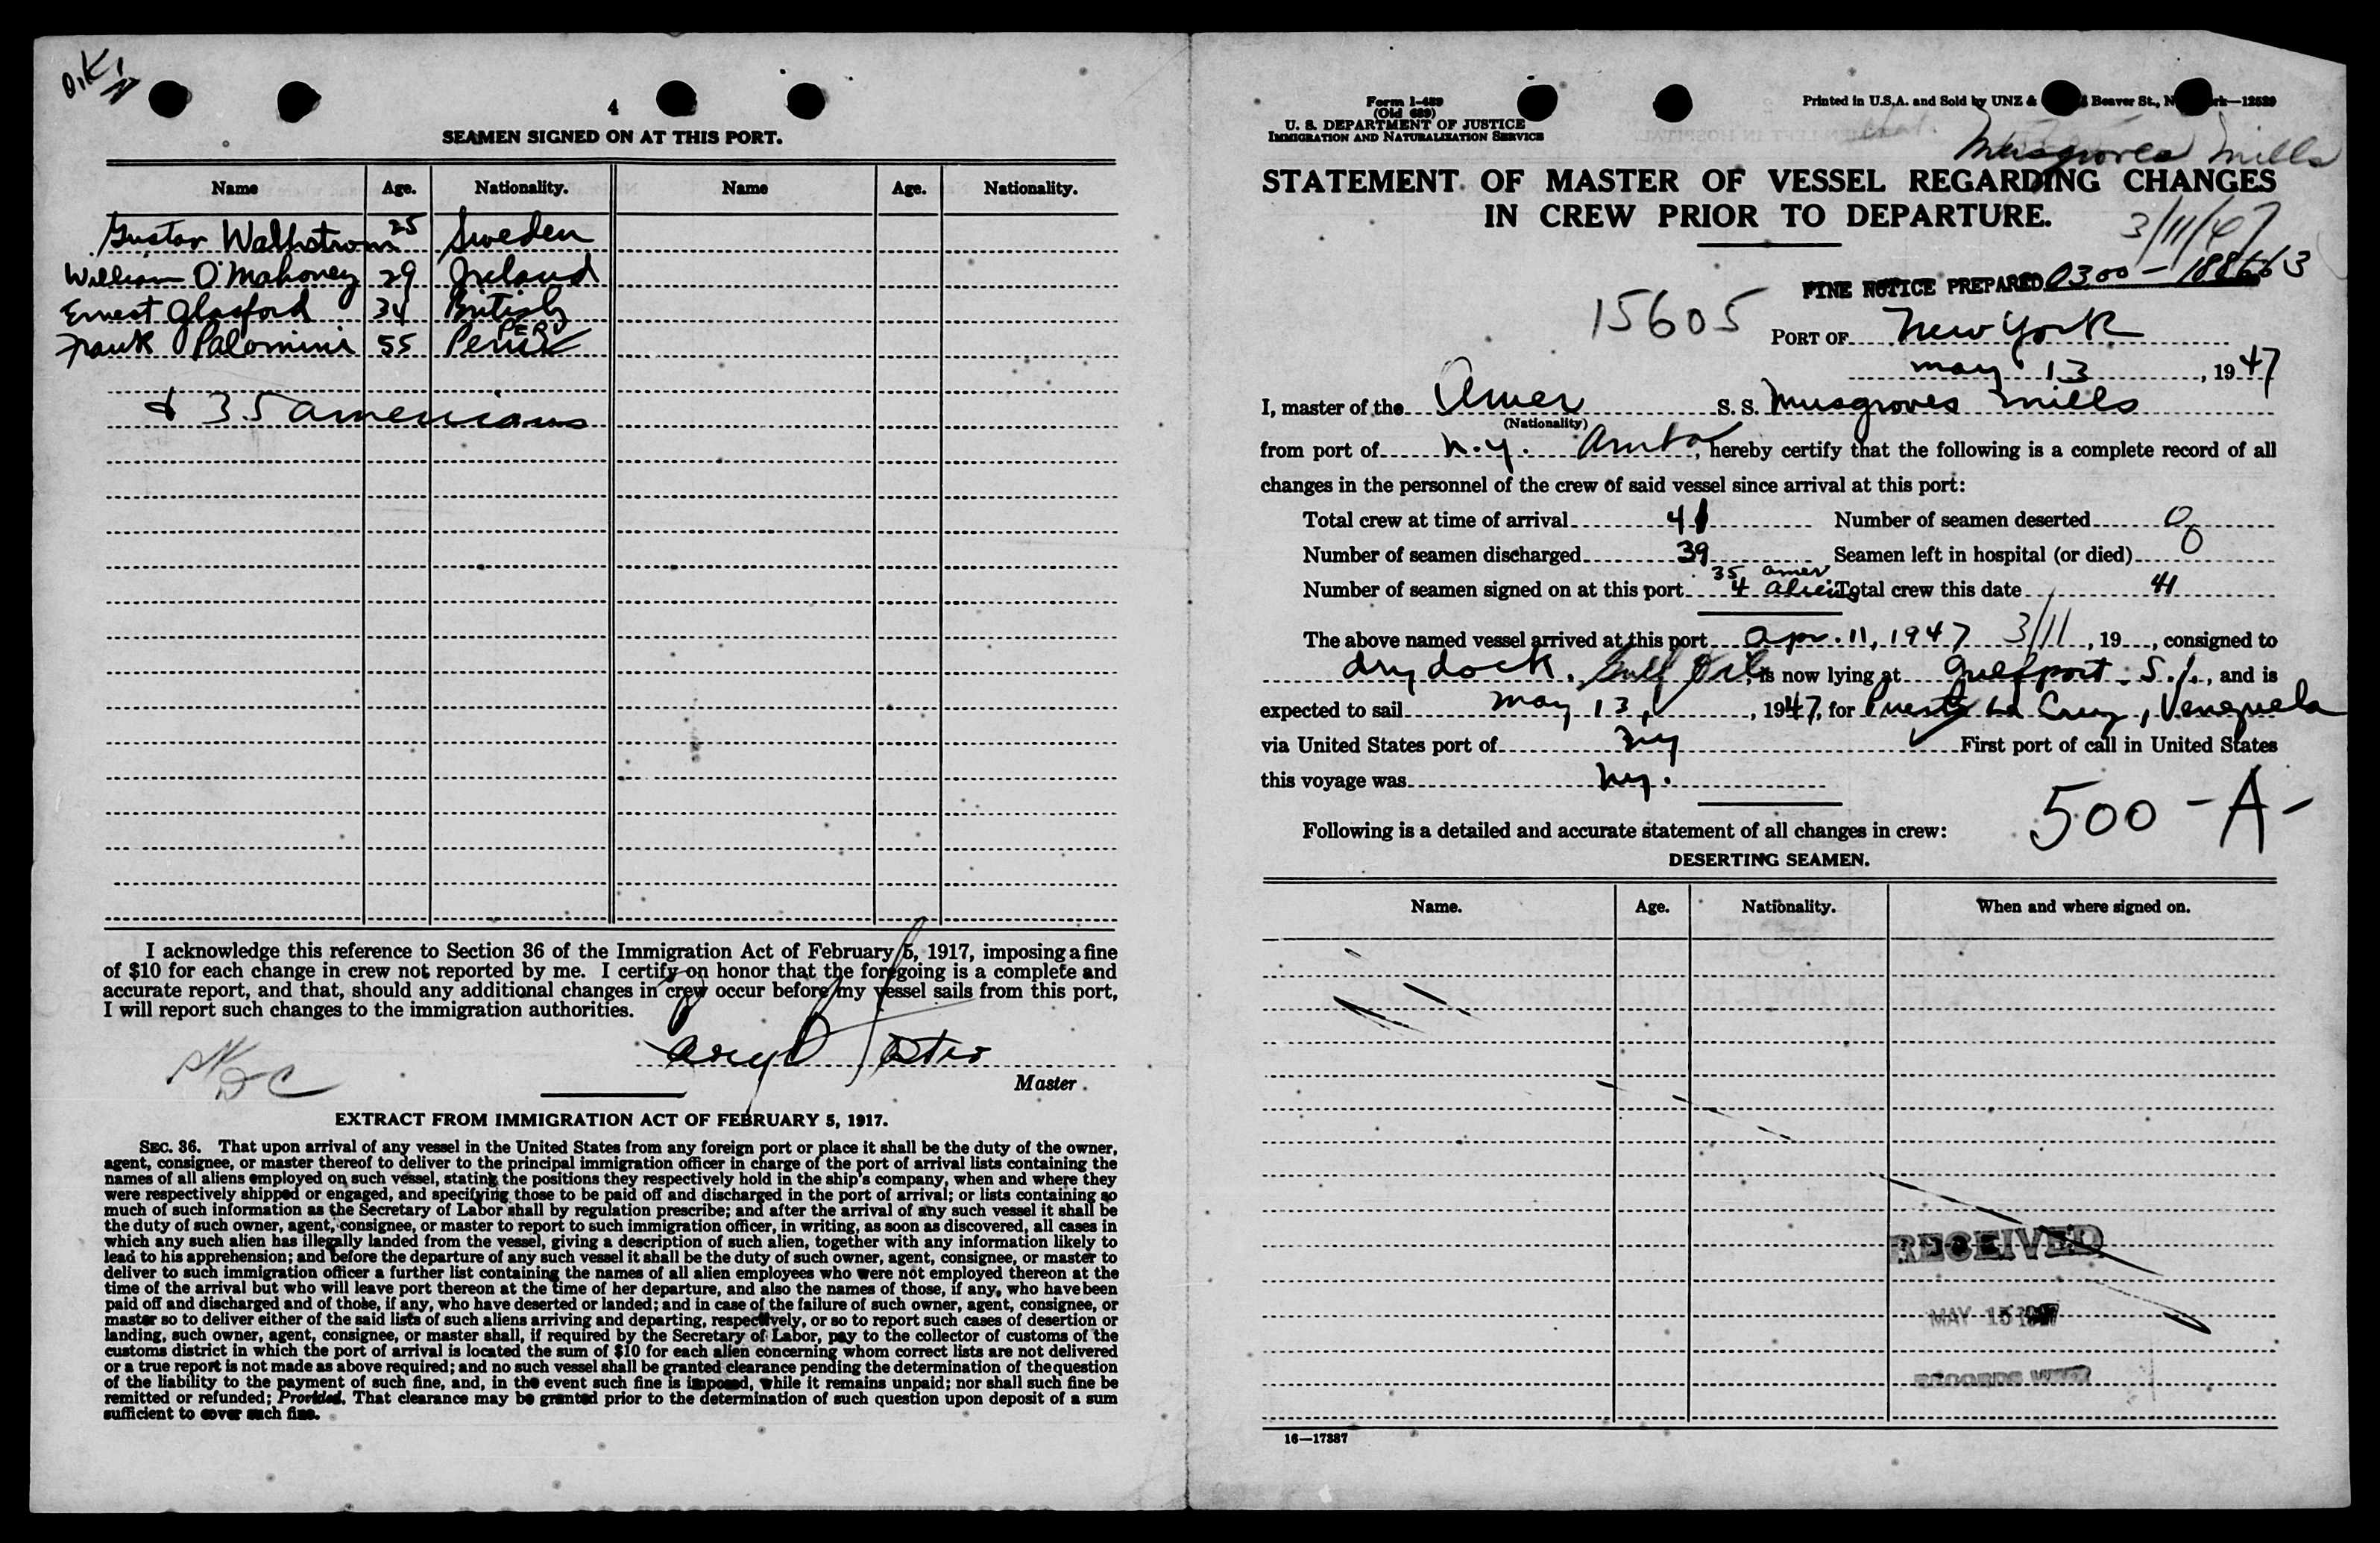 O.K.
4
SEAMEN SIGNED ON AT THIS PORT.
Name Age. Nationality. Name Age. Nationality.
Gustav Wallstrom 25 Sweden
William O'Mahoney 29 Ireland
Ernest Glasford 34 British
PERU
Frank Palomini 55 Peru
& 35 americans
I acknowledge this reference to Section 36 of the Immigration Act of February 5, 1917, imposing a fine
of $10 for each change in crew not reported by me. I certify on honor that the foregoing is a complete and
accurate report, and that, should any additional changes in crew occur before my vessel sails from this port,
I will report such changes to the immigration authorities.
Master.
EXTRACT FROM IMMIGRATION ACT OF FEBRUARY 5, 1917.
SEC. 36. That upon arrival of any vessel in the United States from any foreign port or place it shall be the duty of the owner,
agent, consignee, or master thereof to deliver to the principal immigration officer in charge of the port of arrival lists containing the
names of all aliens employed on such vessel, stating the positions they respectively hold in the ship's company, when and where they
were respectively shipped or engaged, and specifying those to be paid off and discharged in the port of arrival; or lists containing so
much of such information as the Secretary of Labor shall by regulation prescribe; and after the arrival of any such vessel it shall be
the duty of such owner, agent, consignee, or master to report to such immigration officer, in writing, as soon as discovered, all cases in
which any such alien has illegally landed from the vessel, giving a description of such alien, together with any information likely to
lead to his apprehension; and before the departure of any such vessel it shall be the duty of such owner, agent, consignee, or master to
deliver to such immigration officer a further list containing the names of all alien employees who were not employed thereon at the
time of the arrival but who will leave port thereon at the time of her departure, and also the names of those, if any, who have been
paid off and discharged and of those, if any, who have deserted or landed; and in case of the failure of such owner, agent, consignee, or
master so to deliver either of the said lists of such aliens arriving and departing, respectively, or so to report such cases of desertion or
landing, such owner, agent, consignee, or master shall, if required by the Secretary of Labor, pay to the collector of customs of the
customs district in which the port of arrival is located the sum of $10 for each alien concerning whom correct lists are not delivered
or a true report is not made as above required; and no such vessel shall be granted clearance pending the determination of the question
of the liability to the payment of such fine, and, in the event such fine is imposed, while it remains unpaid; nor shall such fine be
remitted or refunded; Provided, That clearance may be granted prior to the determination of such question upon deposit of a sum
sufficient to cover such fine.
Form I-489
(Old 689)
U. S. DEPARTMENT OF JUSTICE
IMMIGRATION AND NATURALIZATION SERVICE
Printed in U.S.A. and Sold by UNZ & Beaver St., 
Musgroves Mills
STATEMENT OF MASTER OF VESSEL REGARDING CHANGES
IN CREW PRIOR TO DEPARTURE.
3/11/47
FINE NOTICE PREPARED 0300-
15605
PORT OF New York
may 13, 1947
I, master of the Amer S. S. Musgroves Mills
(Nationality)
from port of N.Y., hereby certify that the following is a complete record of all
changes in the personnel of the crew of said vessel since arrival at this port:
Total crew at time of arrival 41 Number of seamen deserted 0
Number of seamen discharged 39 Seamen left in hospital (or died) 0
35 amer
Number of seamen signed on at this port 4 aliens Total crew this date 41
The above named vessel arrived at this port Apr. 11, 1947 3/11, 19, consigned to
dry dock. Gulf Oil, is now lying at Gulfport S.I., and is
expected to sail may 13, 1947, for Puerto La Cruz, Venezuela
via United States port of NY First port of call in United States
this voyage was NY.
500-A-
Following is a detailed and accurate statement of all changes in crew:
DESERTING SEAMEN.
Name. Age. Nationality. When and where signed on.
RECEIVED
MAY 15 1947
16—17387